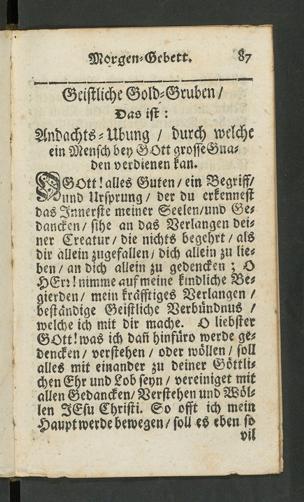 Morgen-Gebett. 87
Geistliche Gold-Gruben /
Das ist :
Andachts-Ubung / durch welche
ein Mensch bey GOtt grosse Gna-
den verdienen kan.
O GOtt! alles Guten / ein Begriff /
und Ursprung / der du erkennest
das Innerste meiner Seelen / und Ge-
dancken / sihe an das Verlangen dei-
ner Creatur / die nichts begehrt / als
dir allein zugefallen / dich allein zu lie-
ben / an dich allein zu gedencken ; O
HErr! nimme auf meine kindliche Be-
gierden / mein kräfftiges Verlangen /
beständige Geistliche Verbündnus /
welche ich mit dir mache. O liebster
GOtt! was ich dañ hinfüro werde ge-
dencken / verstehen / oder wöllen / soll
alles mit einander zu deiner Göttli-
chen Ehr und Lob seyn / vereiniget mit
allen Gedancken / Verstehen und Wöl-
len JEsu Christi. So offt ich mein
Haupt werde bewegen / soll es eben so
vil